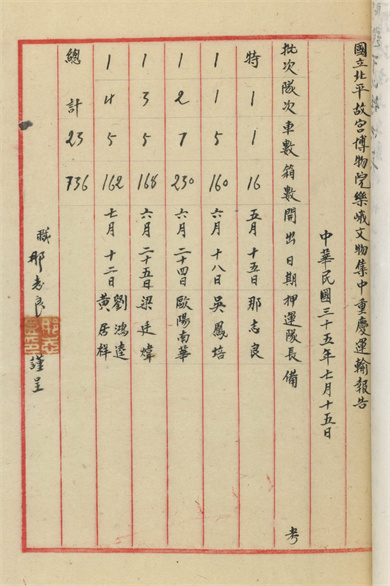 國立北平故宮博物院樂峨文物集中重慶運輸報告
中華民國三十五年七月十五日
批次 隊次 車數 箱數 開出日期 押運隊長 備考
特 1 1 16 五月十五日 那志良
1 1 5 160 六月十八日 吳鳳培
1 2 7 230 六月二十四日 歐陽南華
1 3 5 168 六月二十五日 梁廷煒
1 4 5 162 七月十二日 劉鴻逵 黃居祥
總計 23 736
職 那志良 謹呈